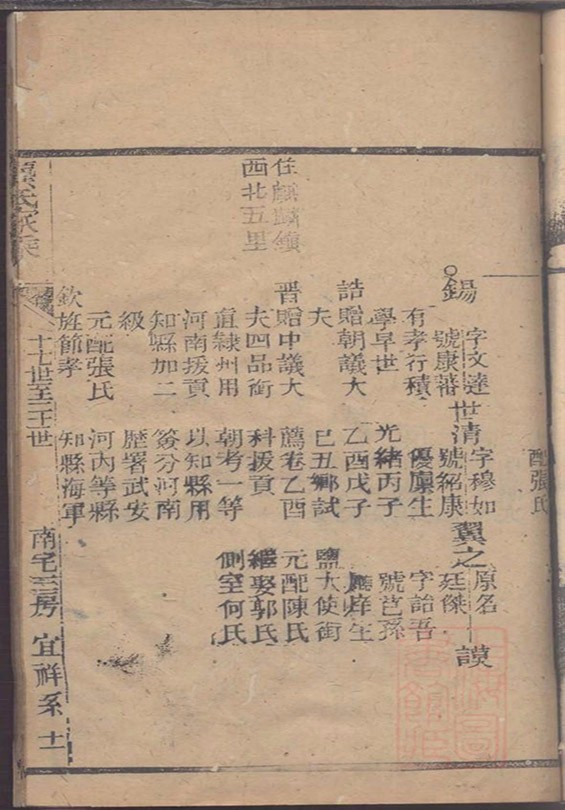 配張氏
錫
字文達
號康蕃
有孝行積
學早世
誥贈朝議大
夫
晋贈中議大
夫四品銜
直隷州用
河南援貢
知縣加二
級
元配張氏
欽旌節孝
世清
字穆如
號紹康
優廪生
光緒丙子
乙酉戊子
巳丑鄉試
薦卷乙酉
科援貢
朝考一等
以知縣用
簽分河南
歷署武安
河内等縣
知縣海軍
翼之
原名
廷傑
字詒吾
號芑孫
庠生
鹽大使銜
元配陳氏
繼娶郭氏
側室何氏
謨
住麒麟嶺
西北五里
氏家乘
卷
十七世至二十世
南宅三房
宜祥系
十一